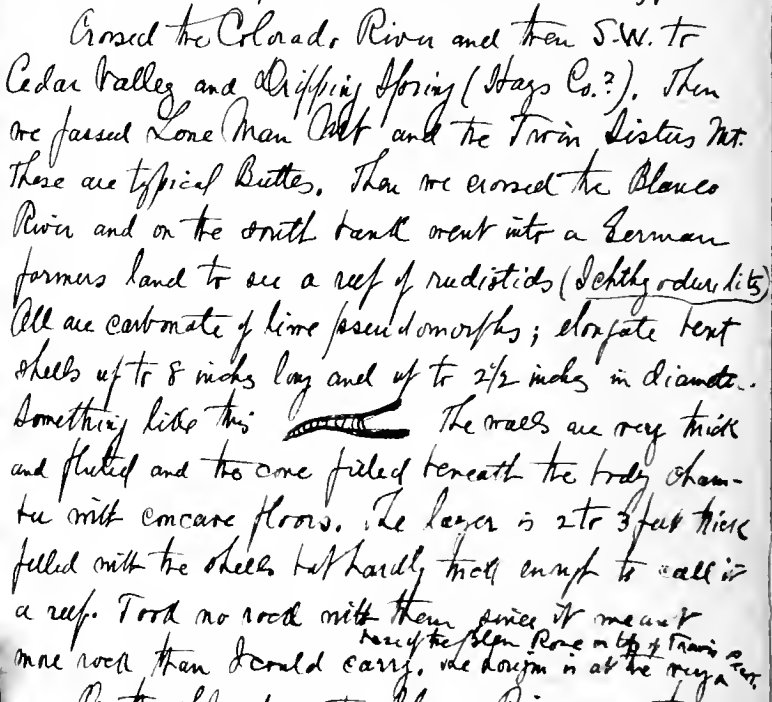 Crossed the Colorado River and then S.W. to
Cedar Valley and Dripping Spring (Hays Co.?). Then
we passed Lone Man Mt and the Twin Sisters Mt.
These are typical Buttes. Then we crossed the Blanco
River and on the south bank went into a German
farmers land to see a reef of rudistids (Ichthyodurilits)
All are carbonate of lime pseudomorphs; elongate bent
shells up to 8 inches long and up to 2 1/2 inches in diameter.
Something like this The walls are very thick
and fluted and the cone filled beneath the body cham-
ber with concave floors. The layer is 2 to 3 feet thick
filled with the shells but hardly thick enough to call it
a reef. Took no rock with them since it meant
more rock than I could carry. The horizon is at the very
base of the Glen Rose or top of Travis